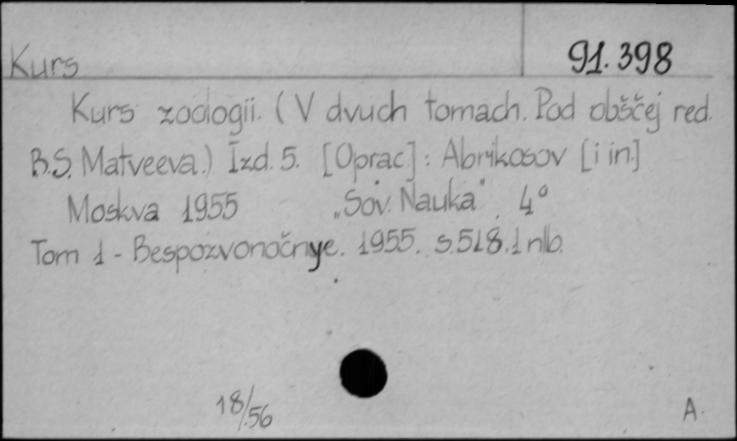 Kurs
91.398
Kurs zoologii. (V dvuch tomach. Pod obščej red.
B.S. Matveeva.) Izd. 5. [Oprac]: Abrikosov [i in.]
Moskva 1955 „Sov. Nauka". 4°
Tom 1 - Bespozvonočnye. 1955. s.518.1 nlb.
18/56
A.